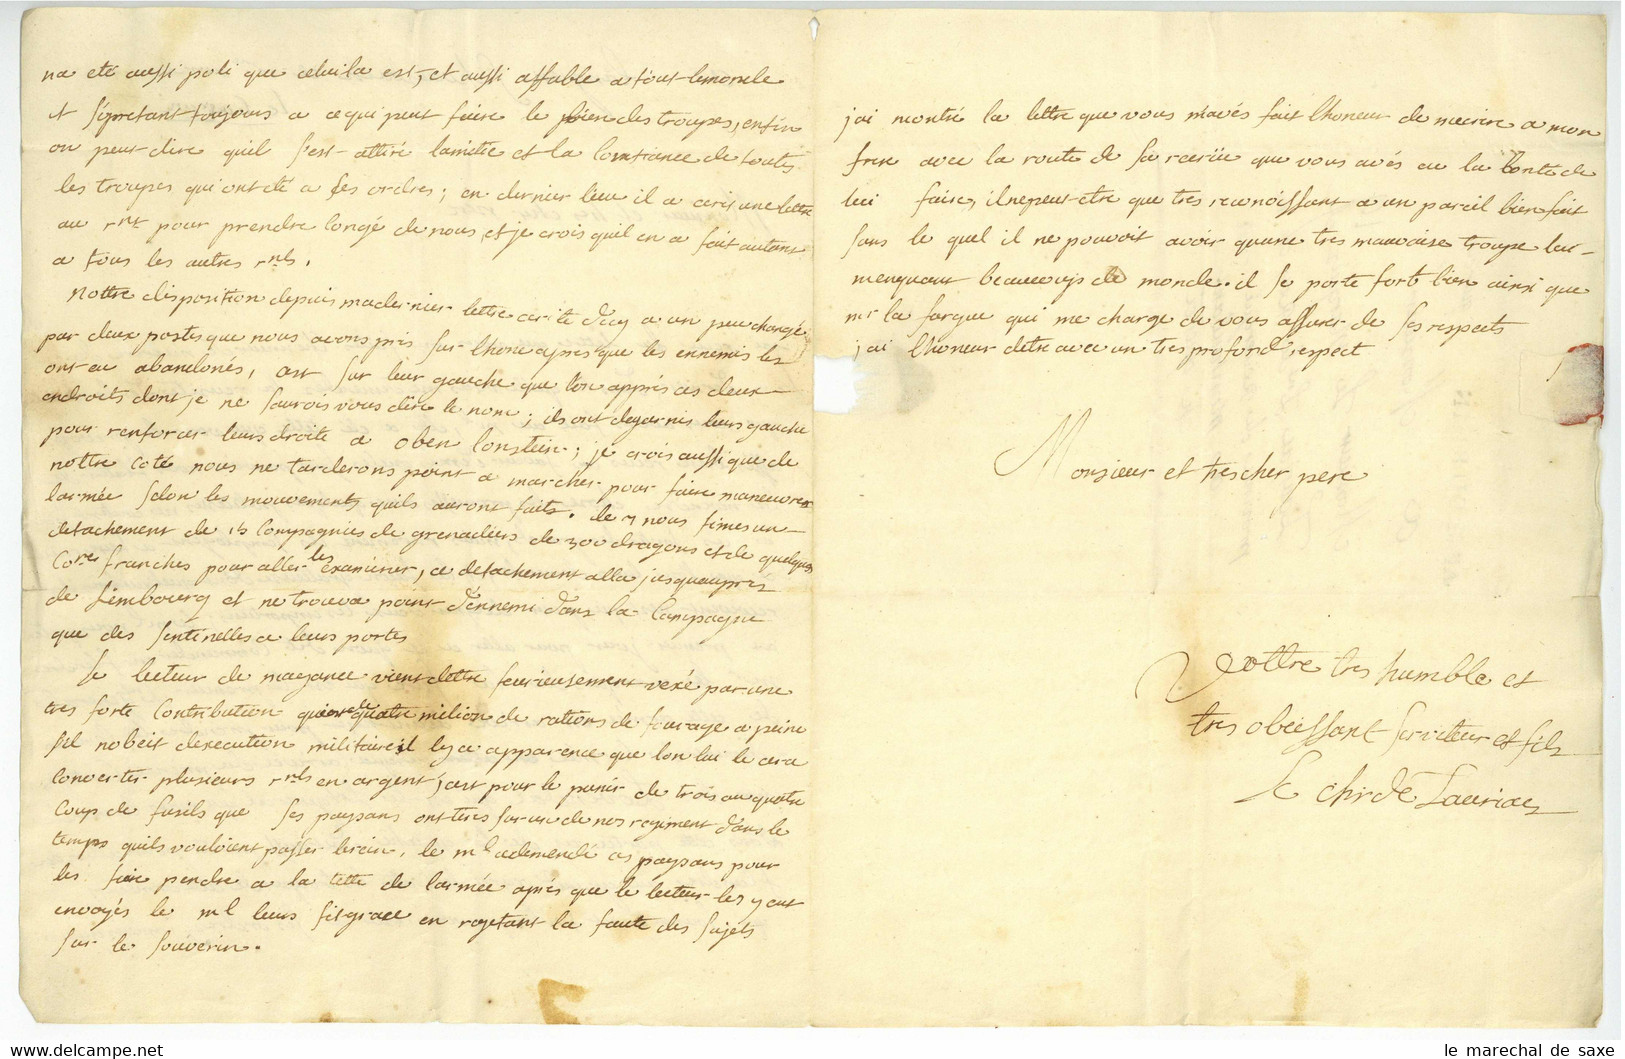 na eté aussi poli que celuila est, et aussi affable a tout lemonde
et s'ipretant toujours a cequi peut faire le bien des troupes, enfin
on peut dire quil s'est attiré lamitie et la Comfiance de toutes
les troupes qui ont eté a ses ordres; en dernier lieu il a ecrit une lettre
au rnt pour prendre congé de nous, et je crois quil en a fait autant
a tous les autres rnts.
Nottre disposition depuis maderniere lettre ecrite d'icy a un peu changé
par deux postes que nous avons pris sur lhone apres que les ennemis les
ont eu abandonés, cest sur leur gauche que l'on appris ces deux
endroits dont je ne saurois vous dire le nom; ils ont degarnis leurs gauche
pour renforcer leurs droite a oben lonstein; je crois aussi que de
nottre coté nous ne tarderons point a marcher pour faire maneuvrer
larmée selon les mouvements quils auront faits. le 7 nous fimes un
detachement de 15 Compagnies de grenadiers de 300 dragons et de quelques
Co.res franches pour aller les examiner, ce detachement alla jusquaupres
de Limbourg et ne trouva point d'ennemi dans la Campagne
que des sentinelles a leurs portes
Le lecteur de mayance vient dettre furieusement vexé par une
tres forte contribution quatre milion de rations de fourage a peine
s'il nobeit dexecution militaire il lya apparence que lon lui le cera
convertir plusieurs rnts en argent, cest pour le punir de trois ou quatre
coup de fusils que ses paysans ont tirés sur un de nos regiment dans le
temps quils vouloient passer lerein, le ml ademendé ces paysans pour
les faire pendre a la tette de larmée aprés que le lecteur les y eut
envoyés le ml leurs fit grace en rejetant la faute des sujets
sur le souverin.
jai montré la lettre que vous mavés fait lhoneur de mecrire a mon
frere avec la route de sa recrüe que vous avés eu la bonté de
lui faire, il ne peut etre que tres reconoissant a un pareil bien fait
sans le quel il ne pouvoit avoir quune tres mauvaise troupe lui
menquant beaucoup de monde. il se porte fort bien ainsi que
mr la fargue qui me charge de vous assurer de ses respects
jai lhoneur detre avec un tres profond respect
Monsieur et tres cher pere
Vottre tres humble et
tres obeissant serviteur et fils
Le chr de Lauriac
le marechal de saxe